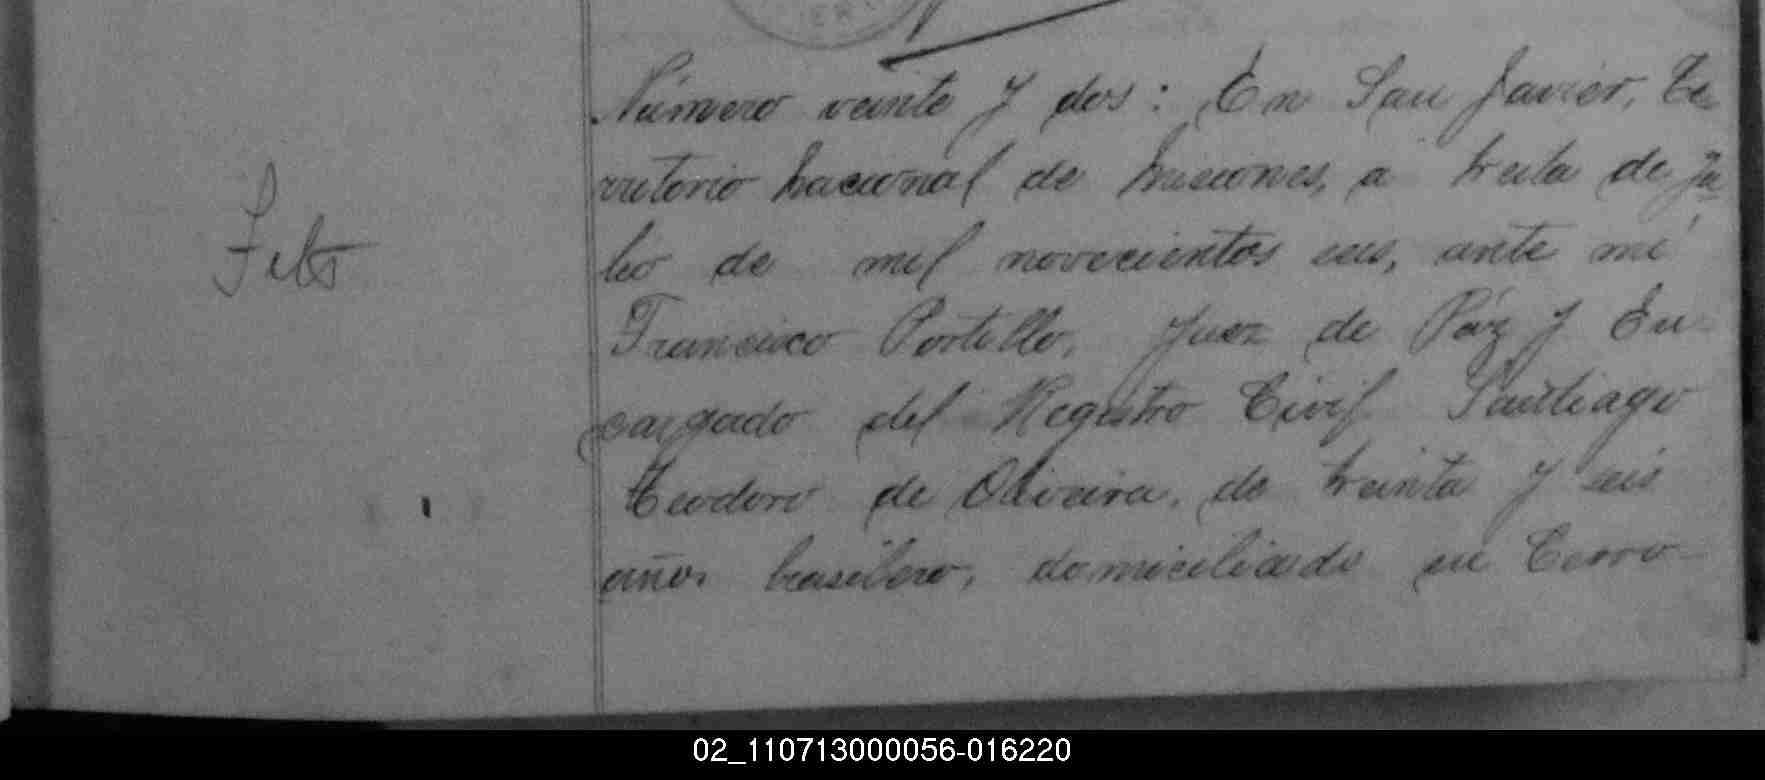 Número veinte y dos: En San Javier, Te-
rritorio Nacional de Misiones, a treita de Ju-
lio de mil novecientos seis, ante mí
Francisco Portillo, Juez de Páz y En-
cargado del Registro Civil Santiago
Feto
Teodoro de Oliveira, de treinta y seis
años brasilero, domiciliado en Cerro-
02_110713000056-016220